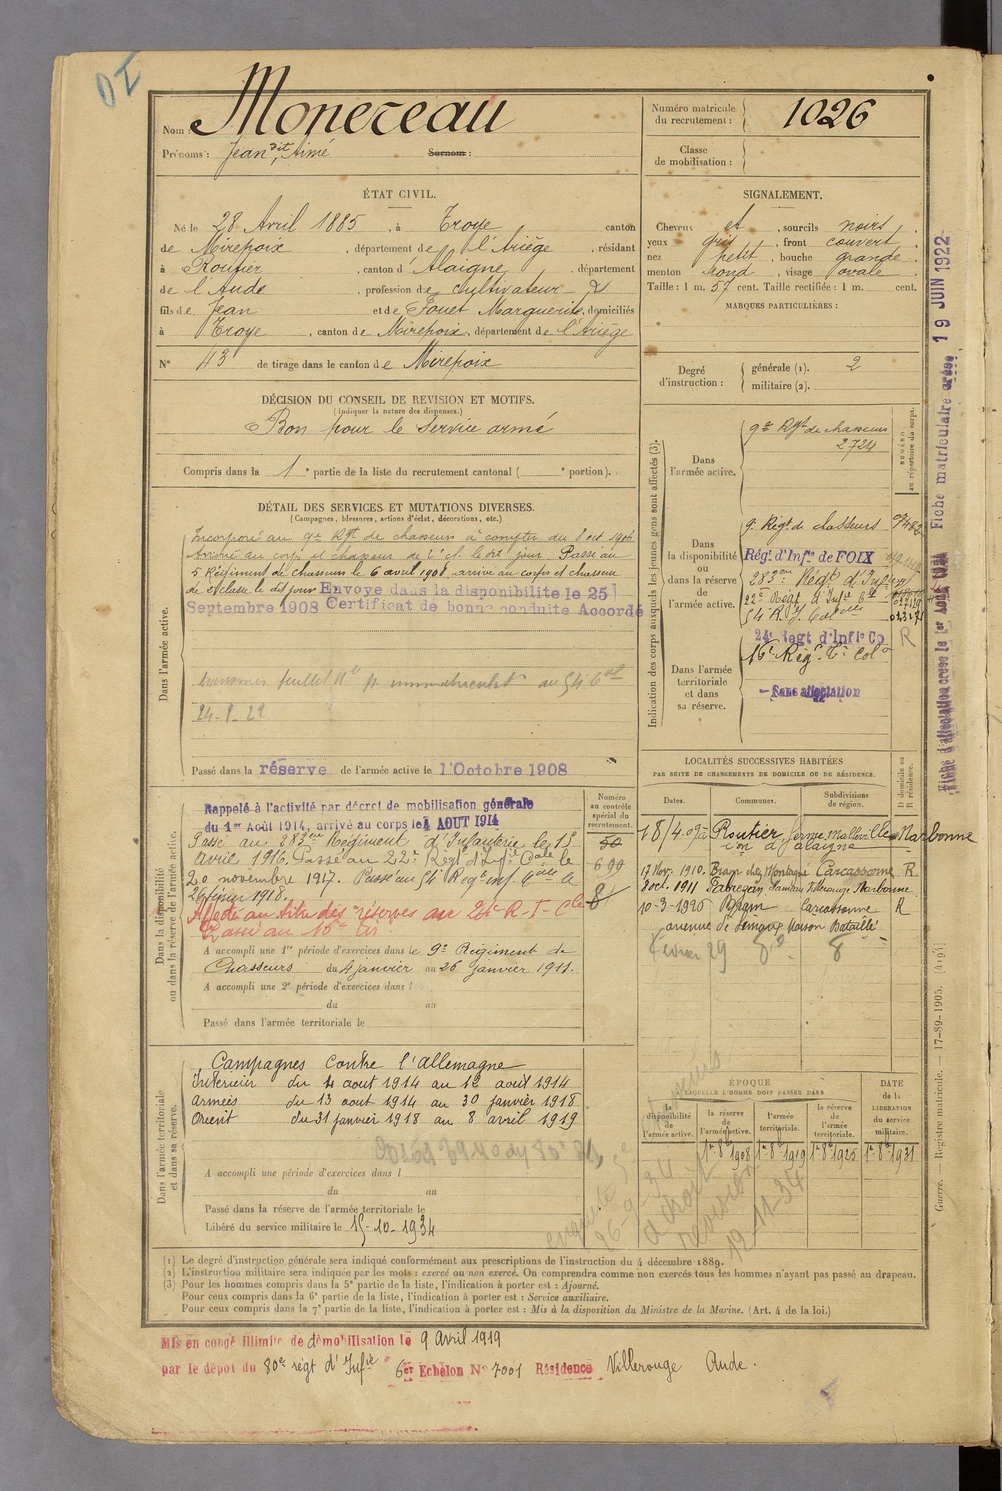 DI
Nom : Monereau
Prénoms : Jean dit Aimé Surnom :
Numéro matricule du recrutement : 1026
Classe de mobilisation :
ÉTAT CIVIL.
Né le 28 Avril 1885, à Troye canton
de Mirepoix, département de l'Ariège, résidant
à Routier, canton d'Alaigne, département
de l'Aude, profession de cultivateur
fils de Jean et de Fouet Marguerite, domiciliés
à Troye, canton de Mirepoix, département de l'Ariège
N° 43 de tirage dans le canton de Mirepoix
SIGNALEMENT.
Cheveux et, sourcils noirs,
yeux gris, front couvert,
nez petit, bouche grande,
menton rond, visage ovale.
Taille : 1 m. 57 cent. Taille rectifiée : 1 m. cent.
MARQUES PARTICULIÈRES :
Degré d'instruction : générale (1). 2
militaire (2).
DÉCISION DU CONSEIL DE REVISION ET MOTIFS.
(Indiquer la nature des dispenses.)
Bon pour le service armé
Compris dans la 1e partie de la liste du recrutement cantonal ( e portion).
DÉTAIL DES SERVICES ET MUTATIONS DIVERSES.
(Campagnes, blessures, actions d'éclat, décorations, etc.)
Dans l'armée active.
Incorporé au 9e Rgt de chasseurs à compter du 8 oct 1906
Arrivé au corps et chasseur de 2e cl. le dit jour Passé au
5 Régiment de chasseurs le 6 avril 1908 arrivé au corps et chasseur
de 2e classe le dit jour Envoyé dans la disponibilité le 25
Septembre 1908 Certificat de bonne conduite Accordé
24-8-22
Passé dans la réserve de l'armée active le 1 Octobre 1908
Indication des corps auxquels les jeunes gens sont affectés (3).
NUMÉRO au répertoire du corps.
Dans l'armée active.
9e Rgt de chasseurs
2724
Dans la disponibilité ou dans la réserve de l'armée active.
9e Régt de chasseurs
Régt d'Infie de FOIX
283eme Régt d'Infanie
22e Régt d'Infie Cle
54 R. I. Coloale
24e Regt d'Infie Co
R
Dans l'armée territoriale et dans sa réserve.
16e Régt Ti Colo
Sans affectation
Fiche matriculaire créée 19 JUIN 1922
LOCALITÉS SUCCESSIVES HABITÉES
PAR SUITE DE CHANGEMENTS DE DOMICILE OU DE RÉSIDENCE.
Dates. Communes. Subdivisions de région. D domicile ou R résidence.
18/4.09 à Routier ferme Malleville Narbonne
con d'alaigne
17 Nov. 1910. Bram chez Montagné Carcassonne R
8 oct. 1911 Narbonne
10-3-1926 Bram Carcassonne R
avenue de Maison Bataillé
Dans la disponibilité ou dans la réserve de l'armée active.
Numéro au contrôle spécial du recrutement.
699
Rappelé à l'activité par décret de mobilisation générale
du 1er Août 1914, arrivé au corps le 4 AOUT 1914
Passé au 283eme Régiment d'Infanterie le 15
Avril 1916. Passé au 22e Régt d'Infie Cale le
20 novembre 1917. Passé au 54 Regt inf. Cale le
26 février 1918.
Affecté au titre des réserves au 24e R.T.Cle
Passé au 16e
A accompli une 1re période d'exercices dans le 9e Régiment de
Chasseurs du 4 janvier au 26 Janvier 1911.
A accompli une 2e période d'exercices dans l
du au
Passé dans l'armée territoriale le
Dans l'armée territoriale et dans sa réserve.
Campagnes contre l'Allemagne
Intérieur du 4 aout 1914 au 12 aout 1914
armées du 13 aout 1914 au 30 janvier 1918
Orient du 31 janvier 1918 au 8 avril 1919
A accompli une période d'exercices dans l
du au
Passé dans la réserve de l'armée territoriale le
Libéré du service militaire le 15-10-1934
ÉPOQUE
À LAQUELLE L'HOMME DOIT PASSER DANS
la disponibilité de l'armée active.
la réserve de l'armée active.
l'armée territoriale.
la réserve de l'armée territoriale.
DATE de la LIBÉRATION du service militaire.
1er 8b 1908 1er 8b 1919 1er 8b 1925 1er 8b 1931
26-9-34
a droit
12-11-34
Guerre. — Registre matricule. — 17-89-1905. [4194]
(1) Le degré d'instruction générale sera indiqué conformément aux prescriptions de l'instruction du 4 décembre 1889.
(2) L'instruction militaire sera indiquée par les mots : exercé ou non exercé. On comprendra comme non exercés tous les hommes n'ayant pas passé au drapeau.
(3) Pour les hommes compris dans la 5e partie de la liste, l'indication à porter est : Ajourné.
Pour ceux compris dans la 6e partie de la liste, l'indication à porter est : Service auxiliaire.
Pour ceux compris dans la 7e partie de la liste, l'indication à porter est : Mis à la disposition du Ministre de la Marine. (Art. 4 de la loi.)
Mis en congé illimité de démobilisation le 9 avril 1919
par le dépôt du 80e régt d'Infie 6er Echelon N° 7001 Résidence Villerouge Aude.